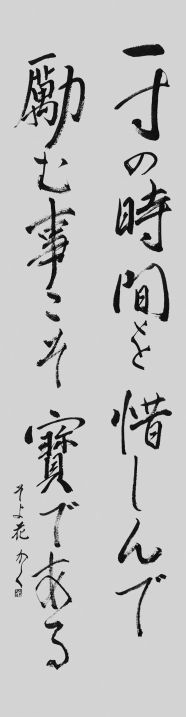 一寸の時間を惜しんで
励む事こそ寳である
そよ花 かく